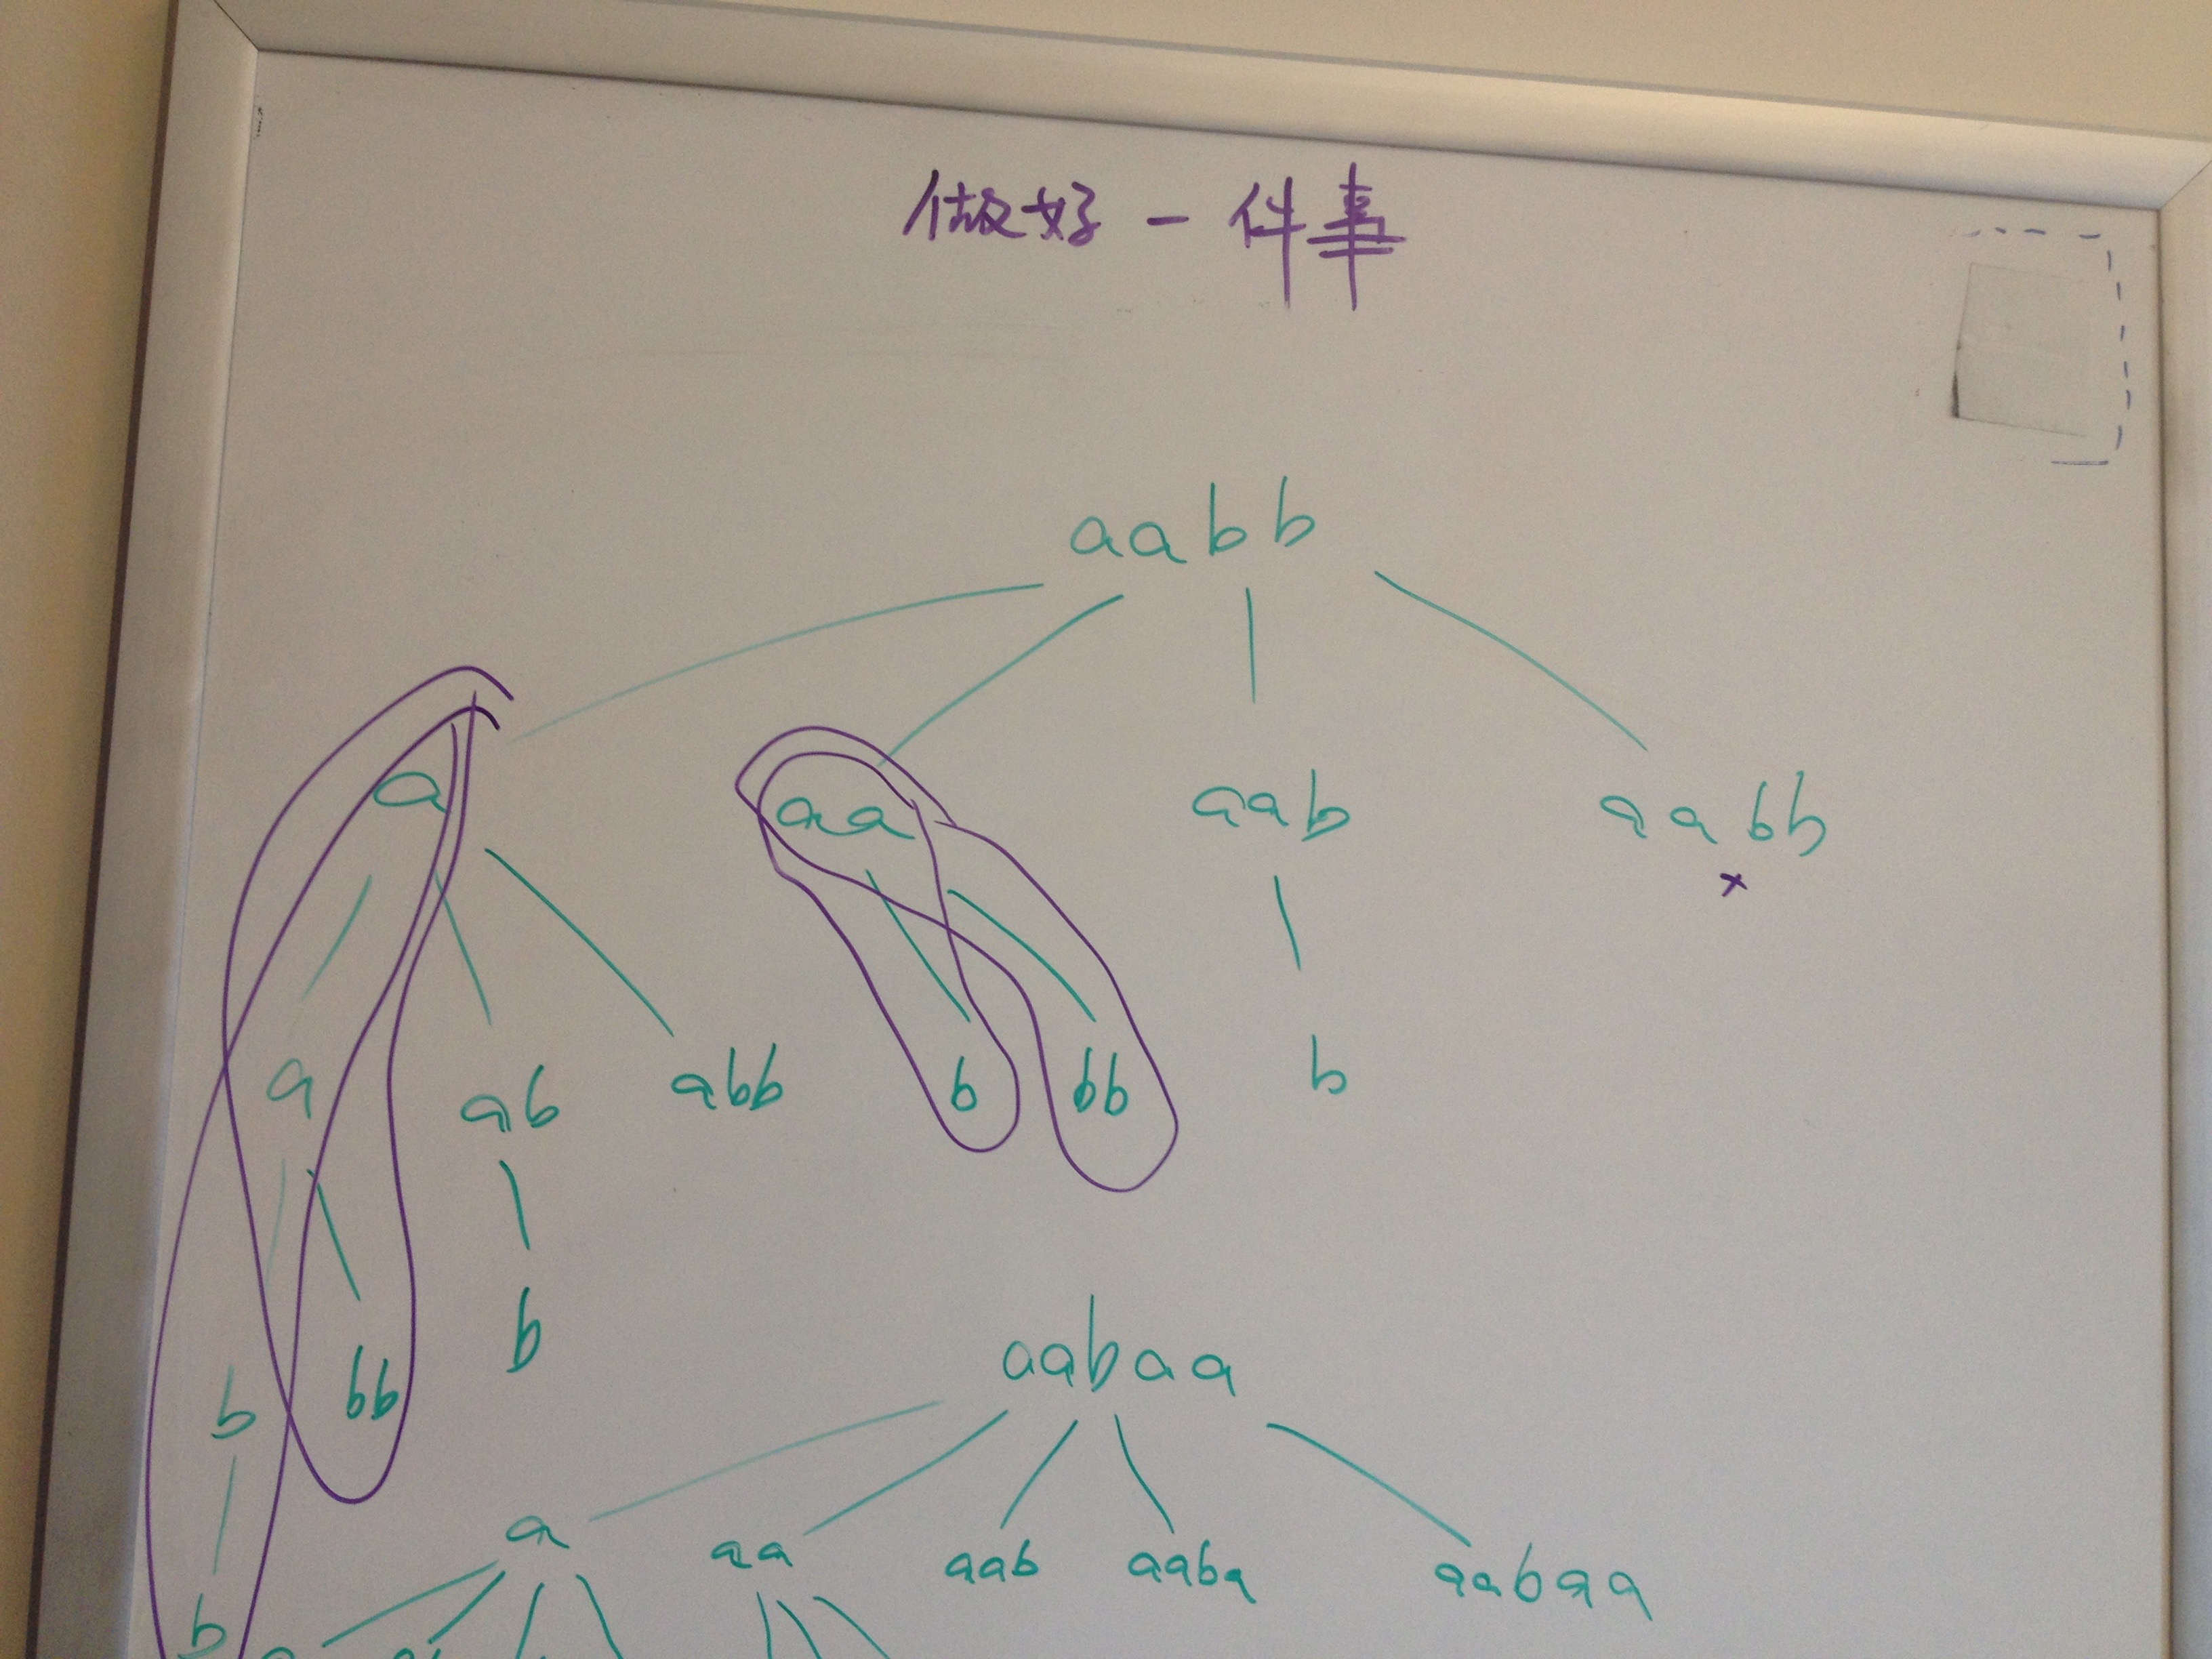 做好一件事
aabb
a aa aab aabb
x
a ab abb b bb b
b bb b
aabaa
a aa aab aaba aabaa
b